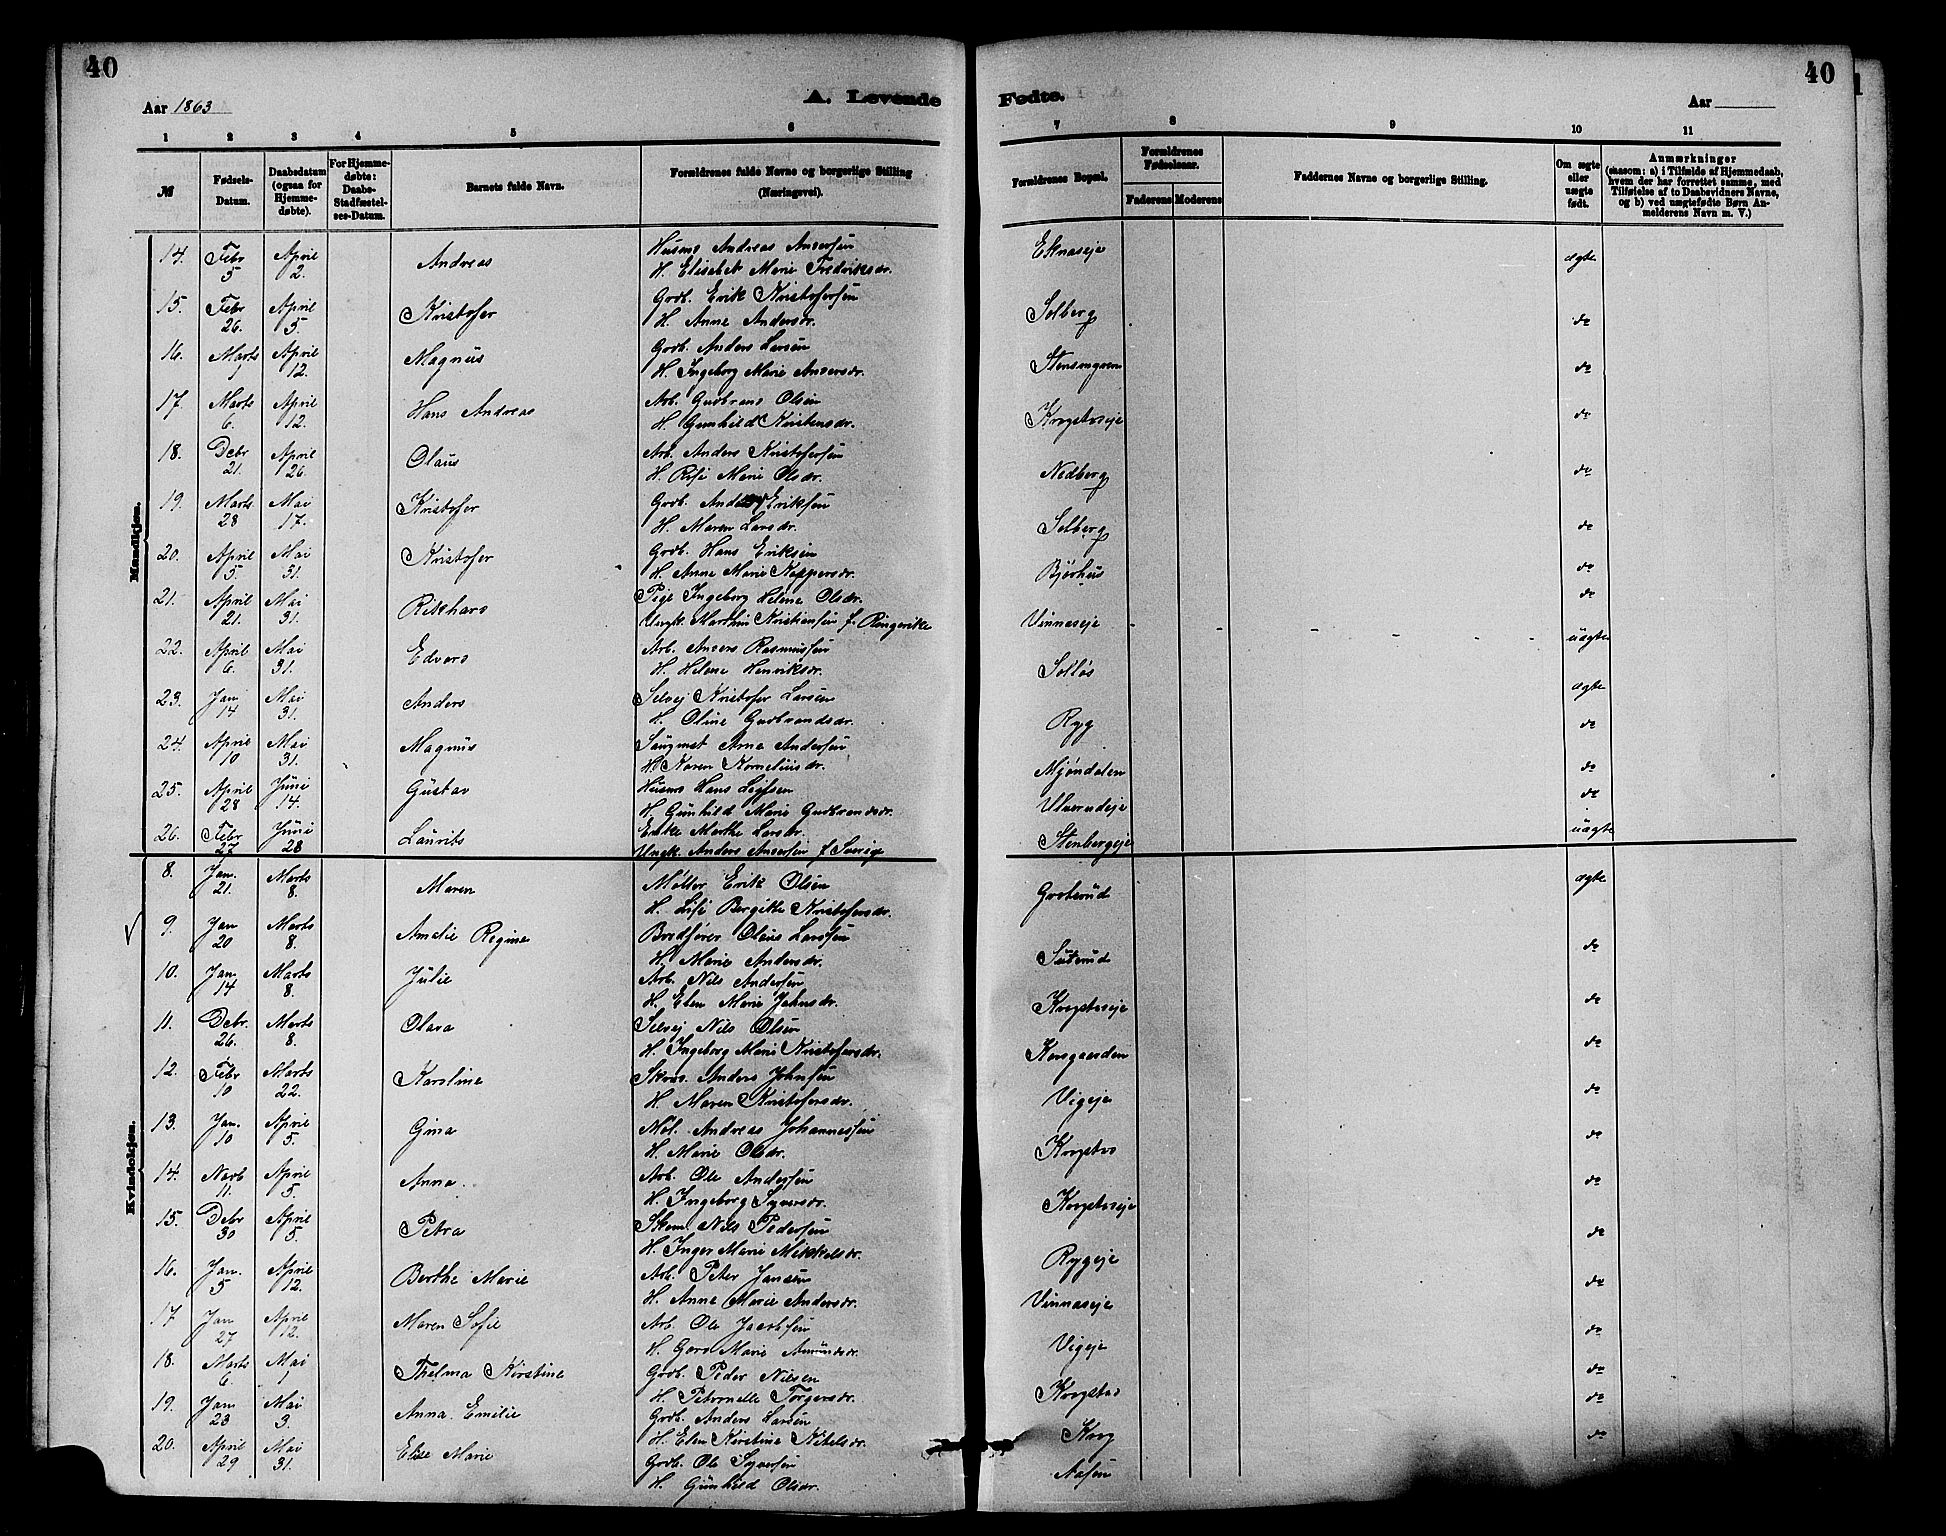 40
40
Aar 1863
A. Levende
Fødte.
Aar
1 2 3 4 5 6 7 8 9 10 11
№
Fødsels-Datum.
Daabsdatum (ogsaa for Hjemmedøbte).
For Hjemmedøbte: Daabs-Stadfæstelses-Datum.
Barnets fulde Navn.
Forældrenes fulde Navne og borgerlige Stilling (Næringsvei).
Forældrenes Bopæl.
Forældrenes Fødselsaar.
Faderens Moderens
Faddernes Navne og borgerlige Stilling.
Om ægte eller uægte født.
Anmærkninger (saasom: a) i Tilfælde af Hjemmedaab, hvem der har forrettet samme, med Tilføielse af to Daabsvidners Navne, og b) ved uægtefødte Børn Anmelderens Navn m. V.)
Mandkjøn.
14. Febr 5 April 2. Andreas Husm Andreas Andersen Eknaseje ægte
H. Elisabet Marie Fredriksdr.
15. Febr 26. April 5. Kristofer Grdb. Erik Kristofersen Solberg do
H. Anne Andersdr.
16. Marts 1 April 12. Magnus Grdb. Anders Larsen do
H. Ingeborg Marie Andersdr.
17. Marts 6. April 12. Hans Andreas Arb. Gudbrand Olsen Krogstadeje do
H. Gunhild Kristensdr.
18. Debr 21. April 26. Olaus Arb. Anders Kristofersen Nedberg do
H. Marie Olsdr.
19. Marts 28 Mai 17. Kristofer Grdb. Anders Eriksen Solberg do
H. Maren Larsdr.
20. April 5. Mai 31. Kristofer Grdb. Hans Eriksen Bjørhus do
H. Anne Marie do
21. April 21. Mai 31. Rikhard Pige Ingeborg Helene Olsdr. Vinnaseje uægte
Ungk. Marthin Kristiansen f. Ringerike
22. April 6. Mai 31. Edvard Arb. Anders Rasmussen Solløs ægte
H. Helene Henriksdr.
23. Jan 14 Mai 31. Anders Selvej Kristofer Larsen Ryg do
H. Oline Gudbrandsdr.
24. April 10 Mai 31. Magnus Saugmst Arne Andersen Mjøndalen do
H. Karen Kornelius dr.
25. April 28 Juni 14. Gustav Husm Hans do
H. Gunhild Marie Gudbrandsdr.
26. Febr 27 Juni 28 Laurits Enke Marthe Larsdr. Stenbergeje uægte
Ungk. Anders Andersen f. Sverige
Kvindekjøn.
8. Jan. 21. Marts 8. Maren Møller Erik Olsen ægte
H. Lise Bergitte Kristofersdr.
9. Jan 20 Marts 8. Amalie Regine Olaus Larssen do
H. Marie Andersdr.
10. Jan 14 Marts 8. Julie Arb. Nils Andersen Krogstadeje do
H. Elen Marie Johnsdr.
11. Debr. 26. Marts 8. Olava Selvej Nils Olsen Korsgaarden do
H. Ingeborg Marie Kristofersdr.
12. Febr 10 Marts 22. Karoline Skrd. Anders Johnsen Vigeje do
H. Maren Kristofersdr.
13. Jan. 10 April 5. Gina Andreas Johannessen Krogstad do
H. Marie Olsdr.
14. Novb 11. April 5. Anna. Arb. Ole Andersen Krogstadeje do
H. Ingeborg Syversdr.
15. Debr 30 April 5. Petra Skom. Nils Pedersen Rygeje do
H. Inger Marie Mikkelsdr.
16. Jan. 5 April 12. Berthe Marie Arb. Peter Jansen Vinnaseje do
H. Anne Marie Andersdr.
17 Jan 27 April 12. Maren Sofie Arb. Ole Jacobsen Vigeje do
H. Marie Amundsdr.
18. Marts 6. Mai 1 Thelma Kirstine Grdb. Peder Nilsen Krogstad do
H. Petronelle Torgersdr. do
19. Jan 23 Mai 3. Anna Emilie Grdb. Anders Larsen Krog
H. Elen Kirstine Nilsdr. do
20. April 29 Mai 31. Elise Marie Grdb. Ole Syversen Aasen
H. Gunhild Olsdr.